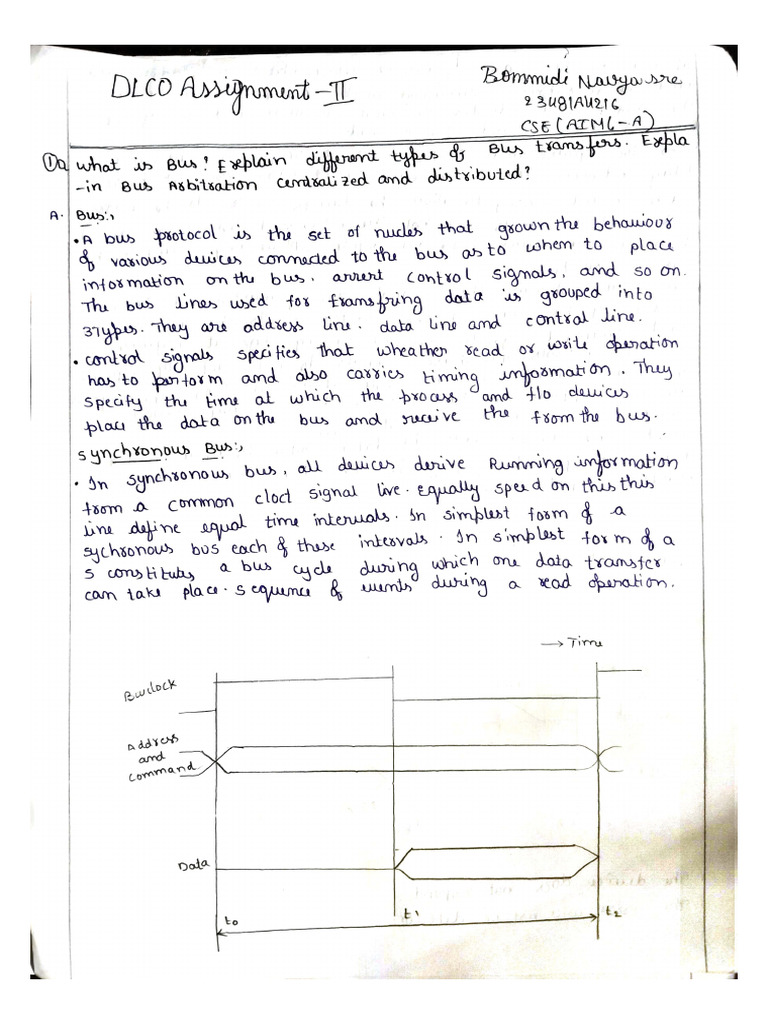 DLCO Assignment-II
Bommidi Navya sre
23481A4216
CSE(AIML-A)
① a what is Bus? Explain different types of Bus transfers. Expla
-in Bus Arbitration centralized and distributed?
A. Bus:,
• A bus protocol is the set of rucles that grown the behaviour
of various devices connected to the bus as to whem to place
information on the bus. arrert control signals, and so on.
The bus lines used for transfring data is grouped into
3Types. They are address line. data line and contral line.
• control signals specifies that wheather read or write operation
has to perform and also carries timing information. They
specify the time at which the process and I/o devices
place the data on the bus and receive the from the bus.
Synchronous Bus:,
• In synchronous bus, all devices derive Running information
from a common cloct signal live. equally speed on this this
line define equal time intervals. In simplest form of a
sychronous bus each of these intervals. In simplest form of a
s constitutes a bus cycle during which one data transfer
can take place. sequence of events during a read operation.
→ Time
Busclock
Address
and
command
Data
t0 t1 t2